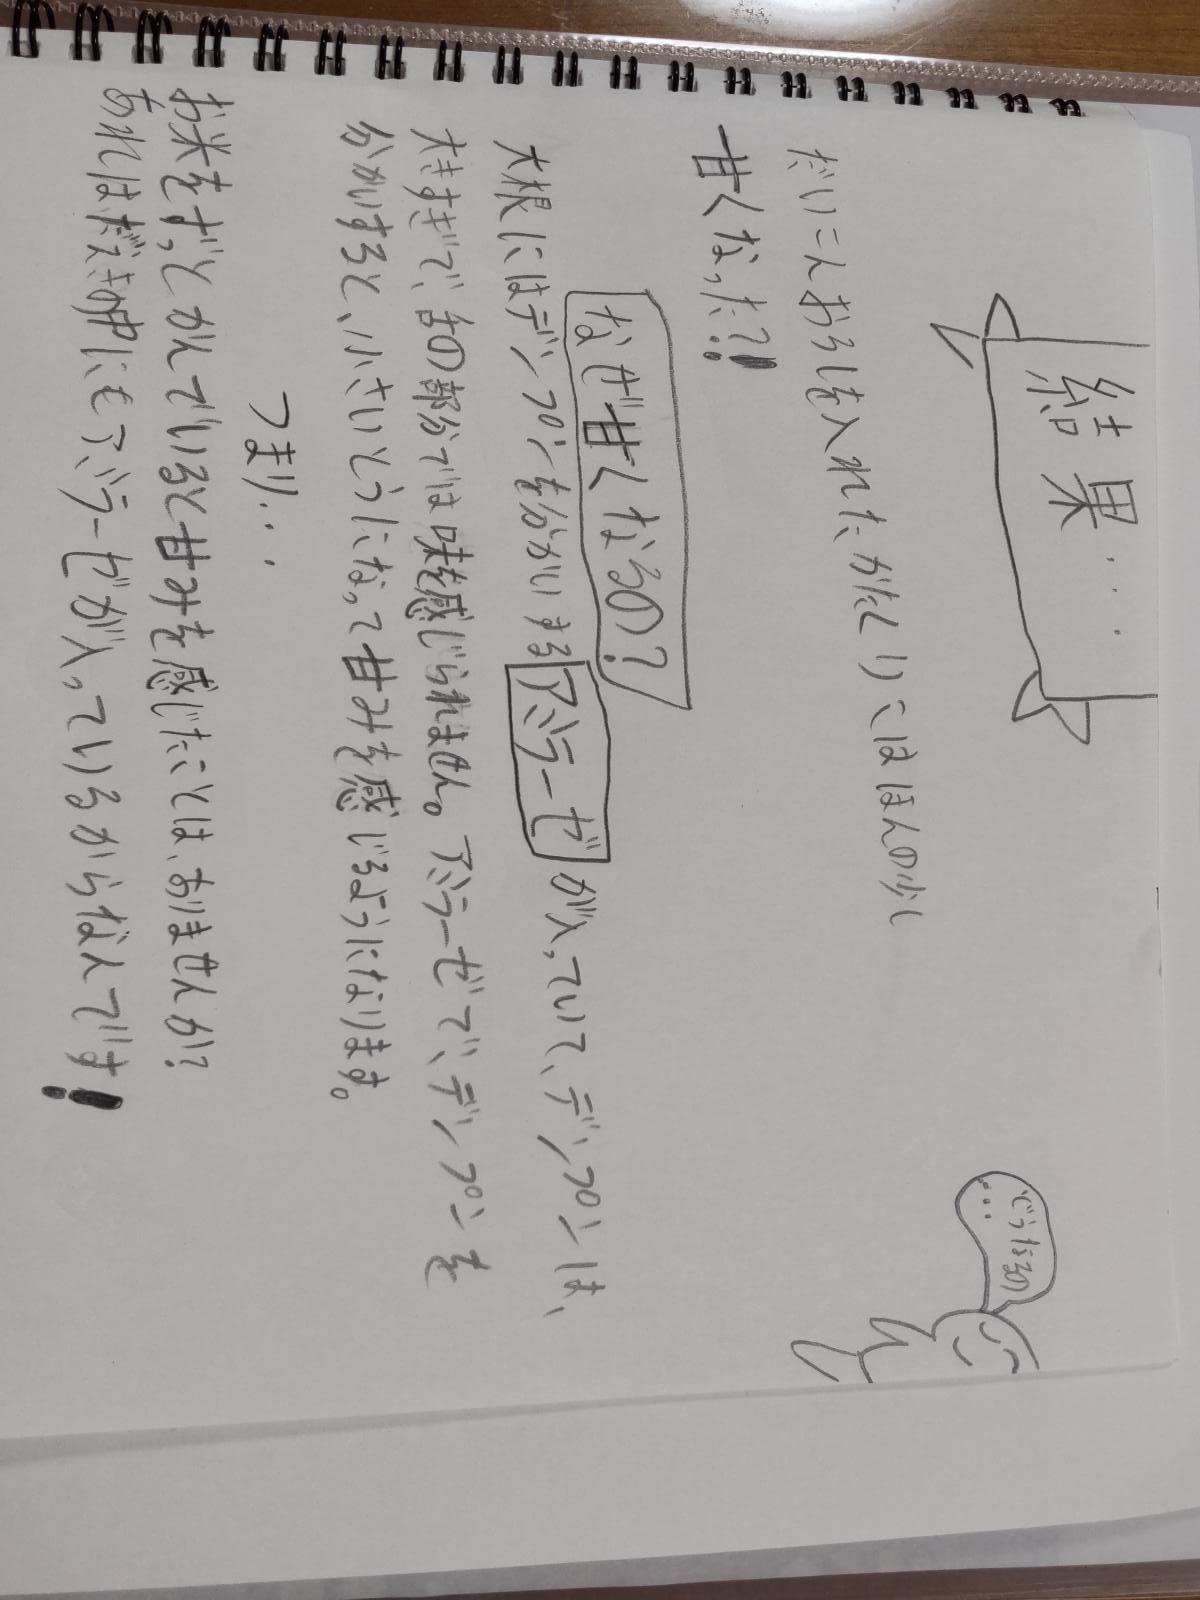 結果...
だいこんおろしを入れたかたくりこはほんの少し
甘くなった?!
なぜ甘くなるの?
大根にはデンプンを分かいするアミラーゼが入っていて、デンプンは、
大きすぎで、舌の部分では味を感じられません。アミラーゼで、デンプンを
分かいすると、小さいとうになって甘みを感じるようになります。
つまり...
お米をずっとかんでいると甘みを感じたことは、ありませんか?
あれはだ液の中にもアミラーゼが入っているからなんです!
どうなるの
...